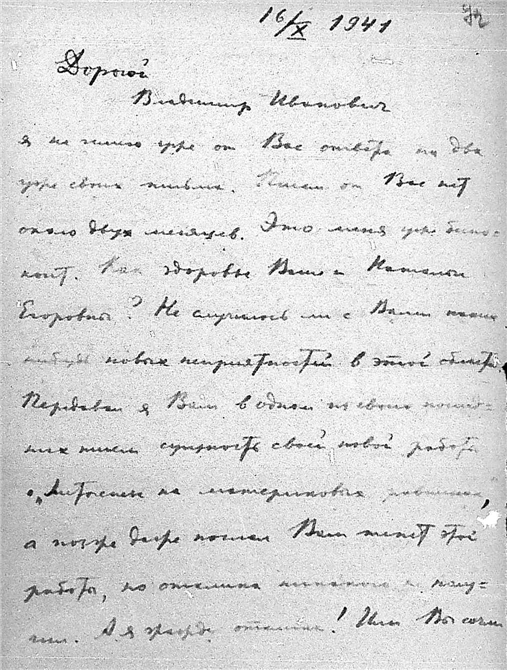 16/X 1941
92
Дорогой
Владимир Иванович
я не имею уже от Вас ответа на два
уже своих письма. Писем от Вас нет
около двух месяцев. Это меня уже беспо-
коит. Как здоровье Ваше и Натальи
Егоровны? Не случилось ли с Вами каких
нибудь новых неприятностей в этой области
Передавал я Вам в одном из своих послед-
них писем сущность своей новой работы
о „ на материковых равнинах",
а позже даже послал Вам текст этой
работы, но отклика никакого не полу-
чил. А я жажду отклика! Или Вы сочли